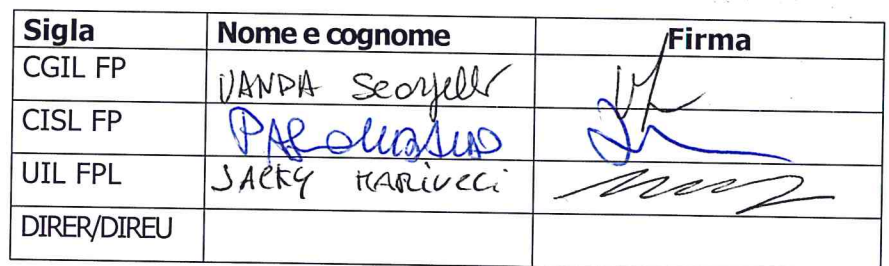 Sigla Nome e cognome Firma
CGIL FP VANDA
CISL FP
UIL FPL JACKY MARIUCCI
DIRER/DIREU